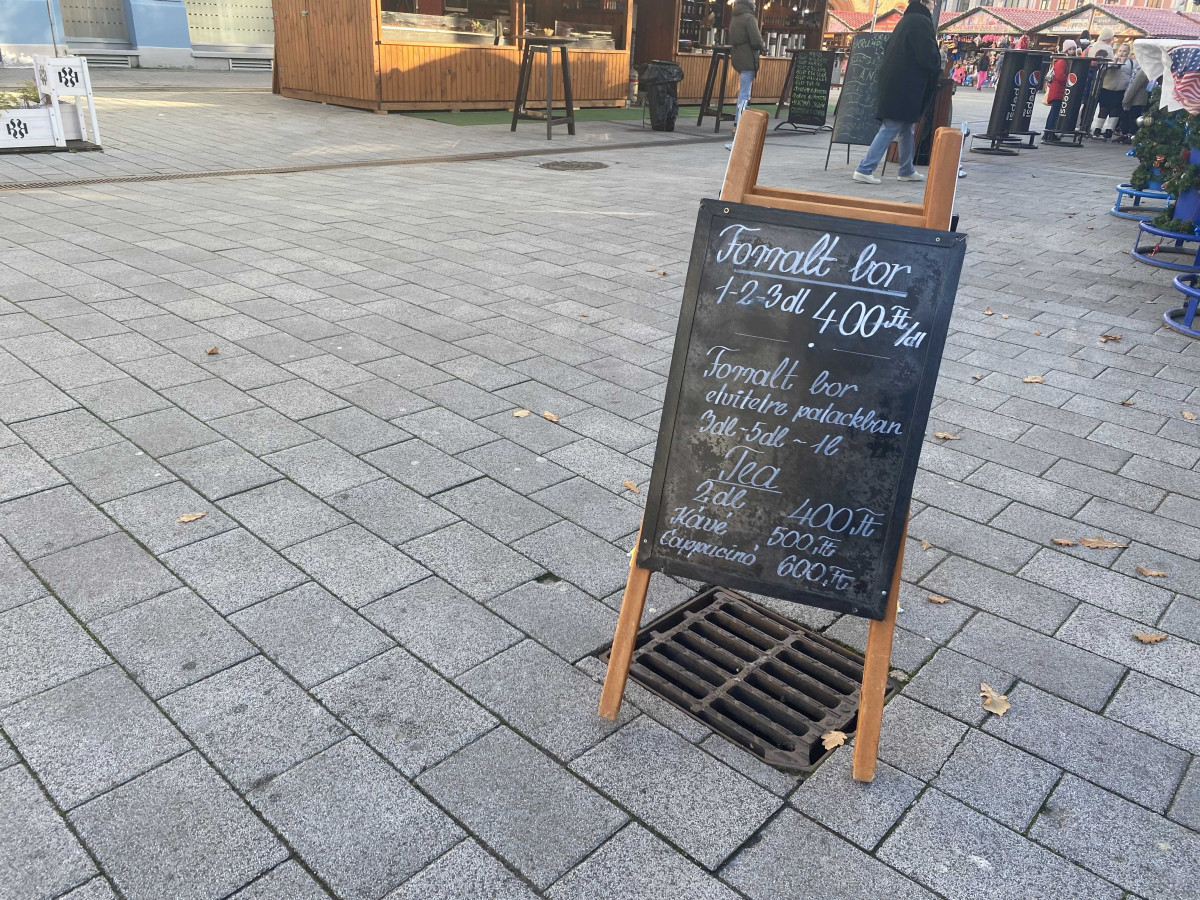 Forralt bor
1-2-3dl 400 Ft/dl
Forralt bor
elvitelre palackban
3dl-5dl ~ 1l
Tea
2dl 400,Ft
Kávé 500,Ft
Cappucinó 600,Ft
pepsi
pepsi
pepsi